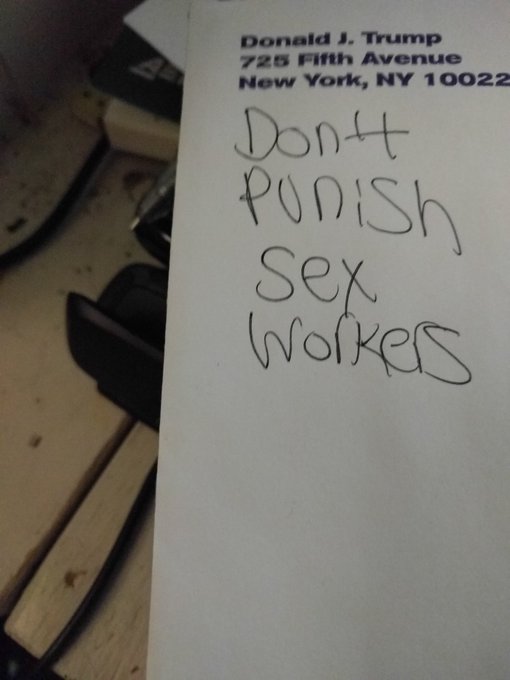 Donald J. Trump
725 Fifth Avenue
New York, NY 10022
Don't
Punish
Sex
Workers